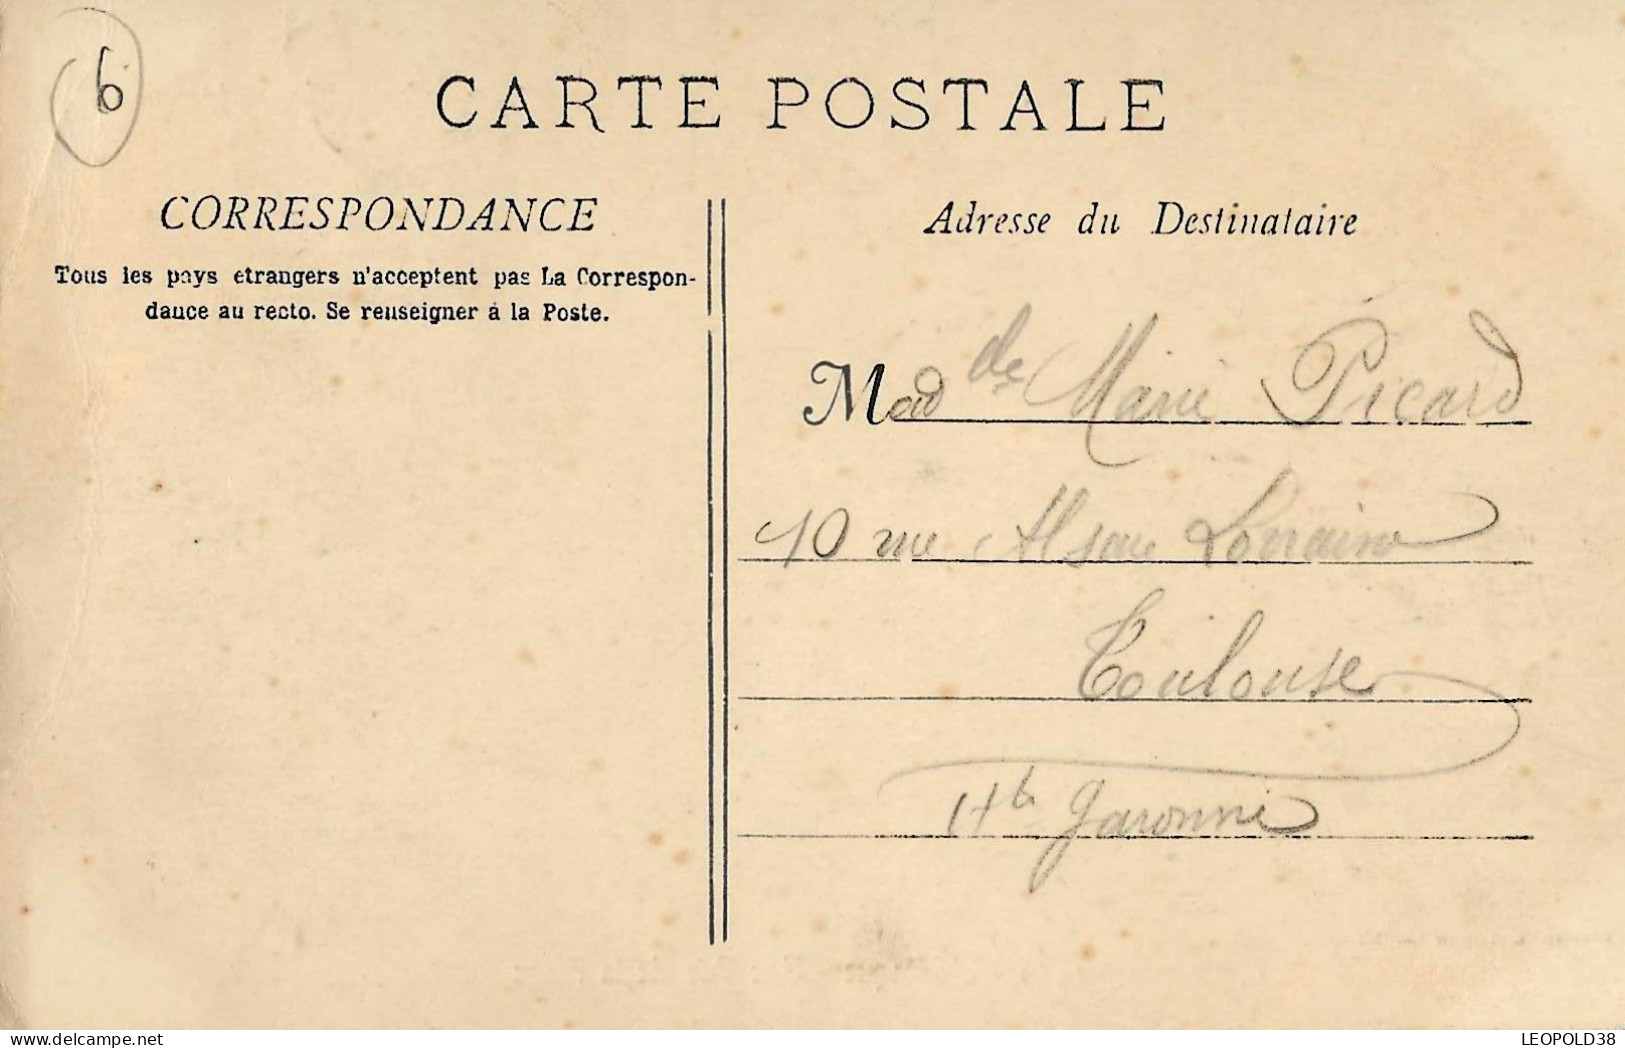 6
CARTE POSTALE
CORRESPONDANCE
Tous les pays etrangers n'acceptent pas La Correspon-
dance au recto. Se renseigner à la Poste.
Adresse du Destinataire
Mad de Marie Picard
10 rue Alsace Lorraine
Toulouse
Hte Garonne
delcampe.net
LEOPOLD38